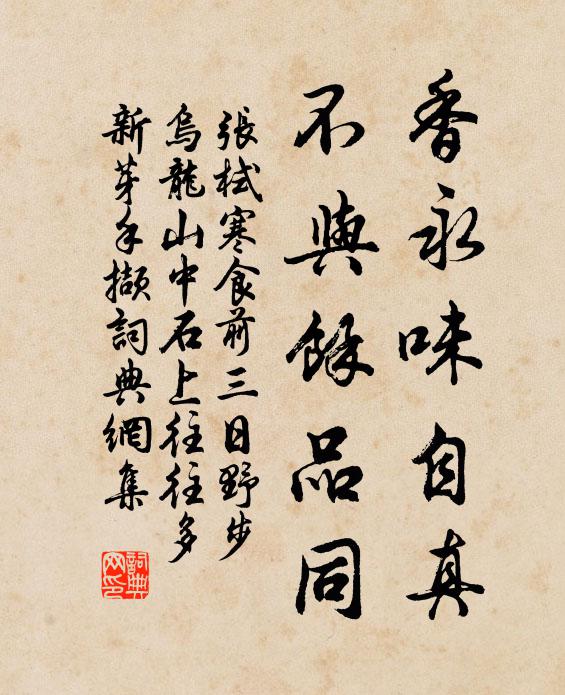 香永味自真
不與餘品同
張栻寒食前三日野步
烏龍山中石上往往多
新芽手擷詞典網集
詞典
网印